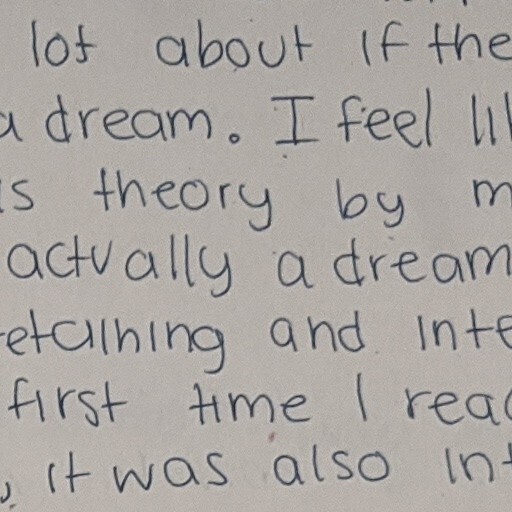 lot about if the
a dream. I feel li
is theory by m
actually a dream
retaining and inte
first time I read
, it was also int